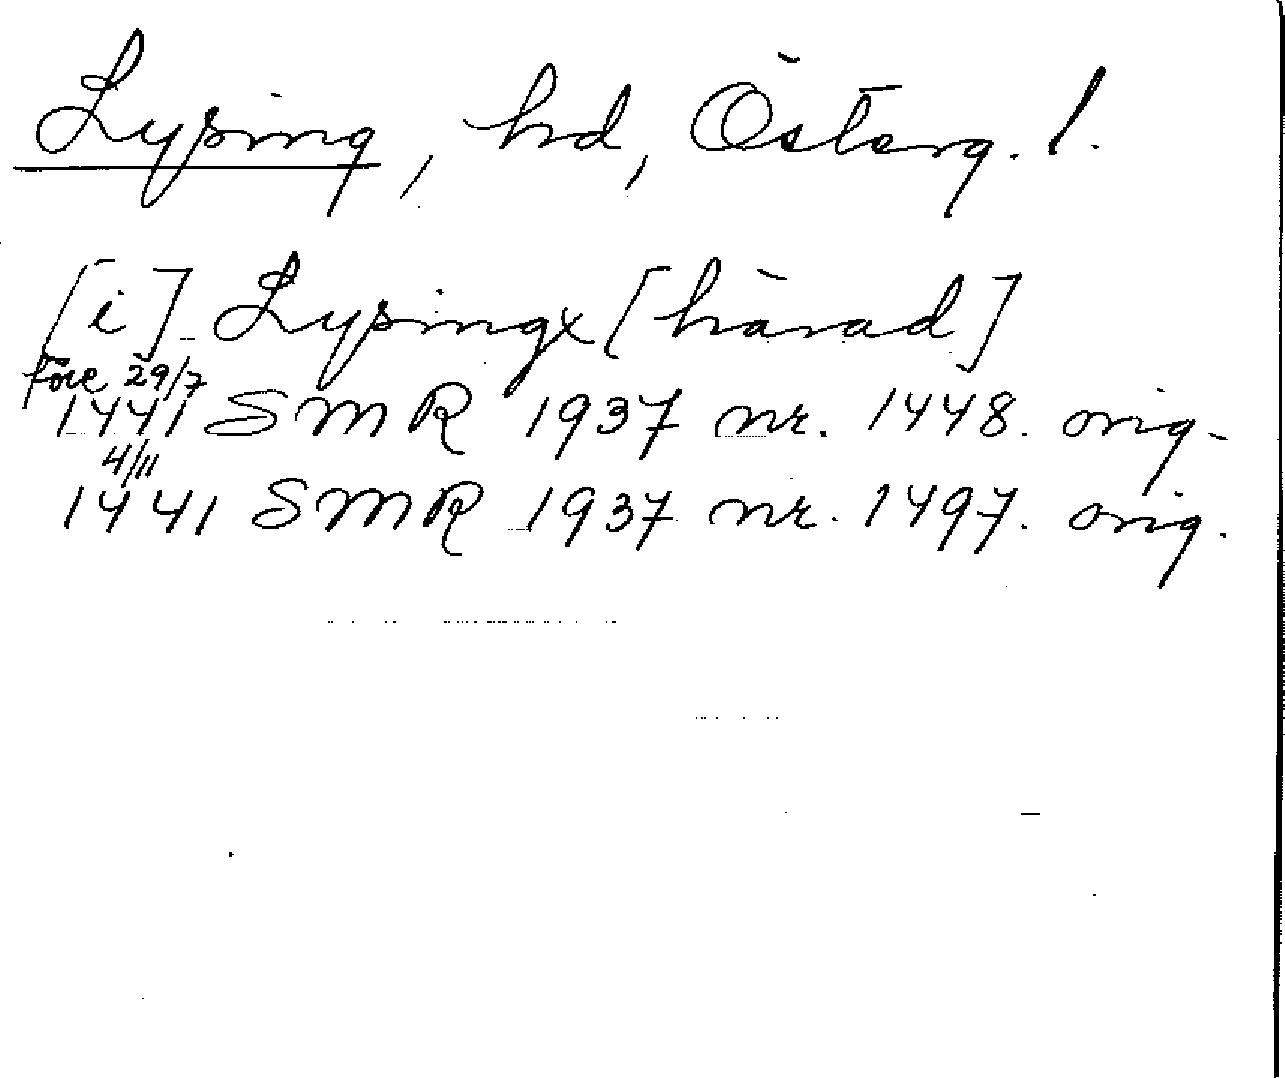 Lysing, hd, Österg. l.
[i] Lysingx [härad]
före 29/7
1441 SMR 1937 nr. 1448. orig.
4/11
1441 SMR 1937 nr. 1497. orig.